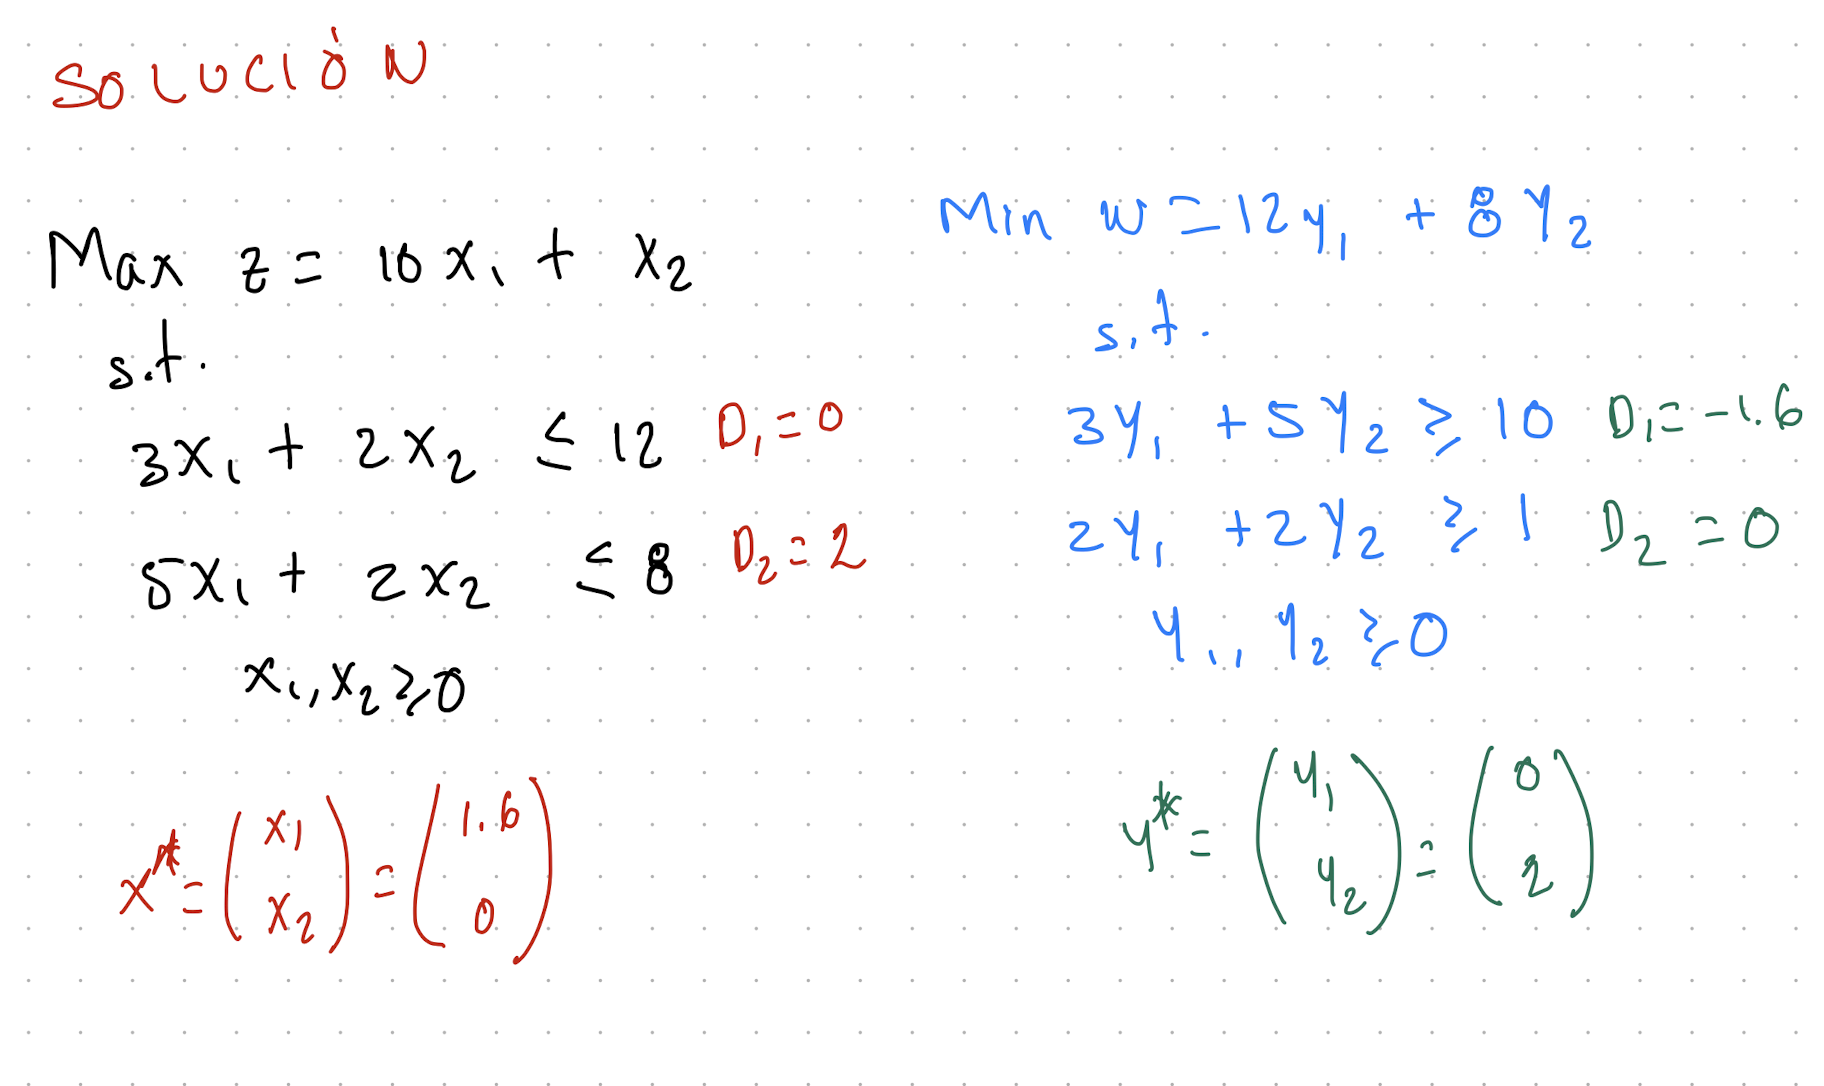 SOLUCIÓN
Max z = 10x₁ + x₂
s.t.
3x₁ + 2x₂ ≤ 12 D₁ = 0
5x₁ + 2x₂ ≤ 8 D₂ = 2
x₁, x₂ ≥ 0
x* = (x₁ x₂) = (1.6 0)
Min w = 12y₁ + 8y₂
s.t.
3y₁ + 5y₂ ≥ 10 D₁ = -1.6
2y₁ + 2y₂ ≥ 1 D₂ = 0
y₁, y₂ ≥ 0
y* = (y₁ y₂) = (0 2)